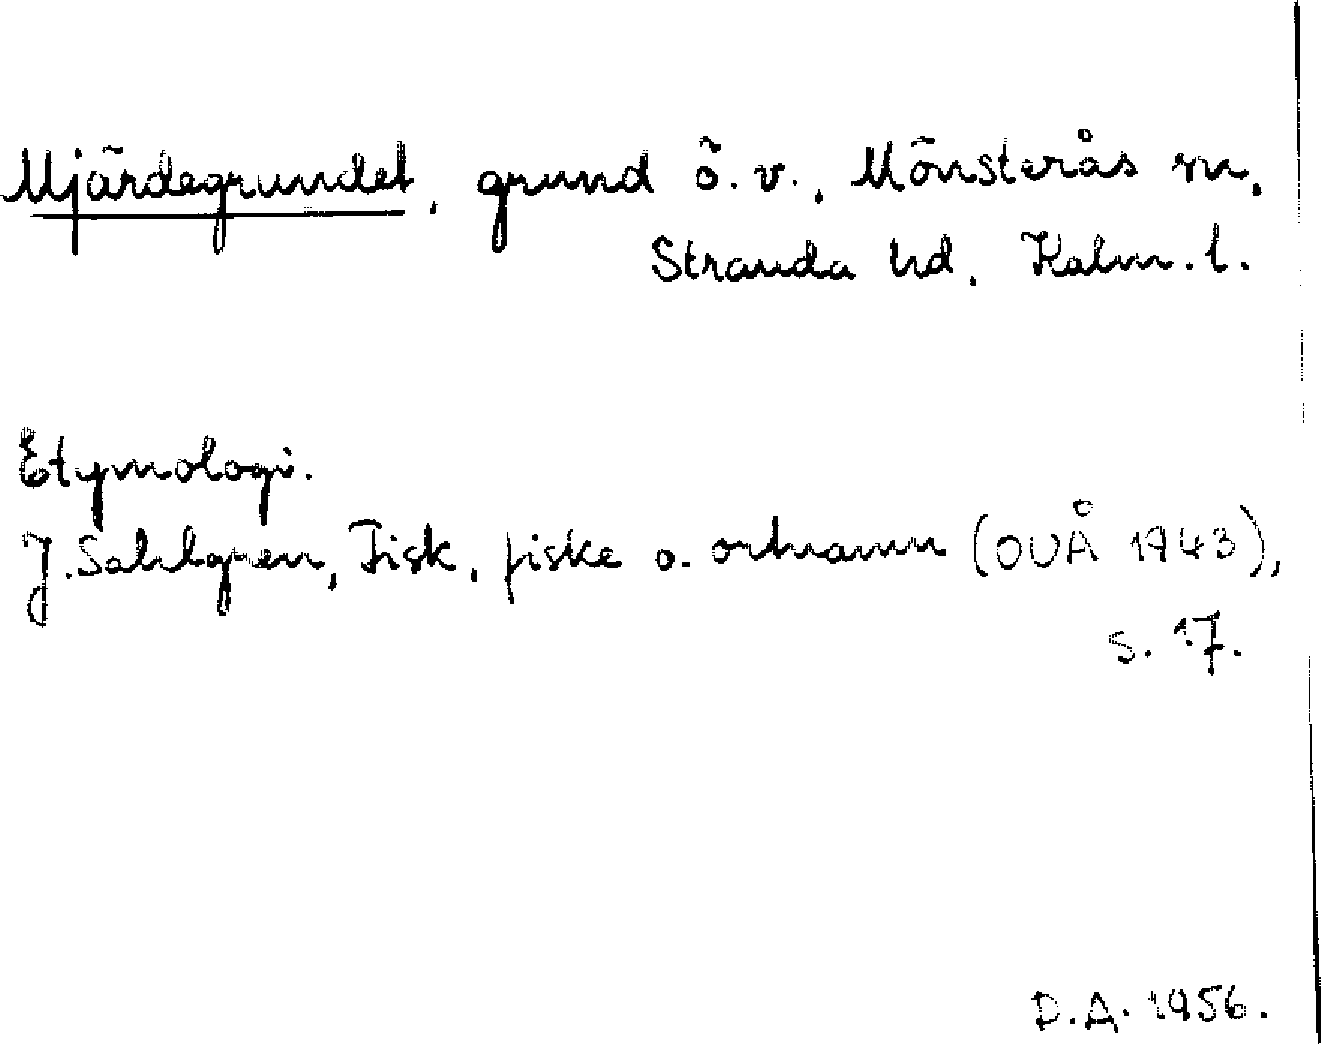 Mjärdegrundet, grund ö.v., Mönsterås sn,
Stranda hd, Kalm. l.
Etymologi.
J. Sahlgren, Fisk, fiske o. ortnamn (OUÅ 1943),
s. 17.
D.A. 1956.